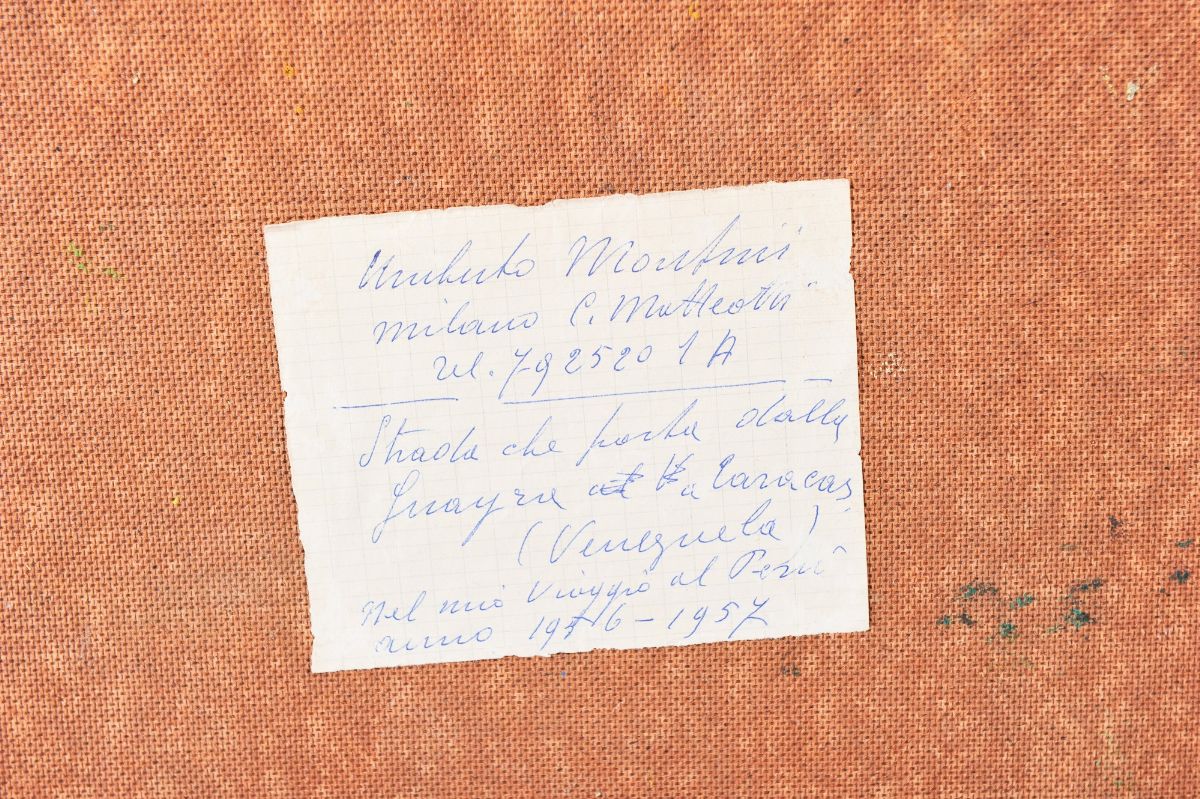 Umberto Montini
Milano C. Matteotti
Tel. 792520 1 A
Strada che porta dalla
Guayra a Caracas
(Venezuela)
Nel mio Viaggio al Perù
anno 1956-1957